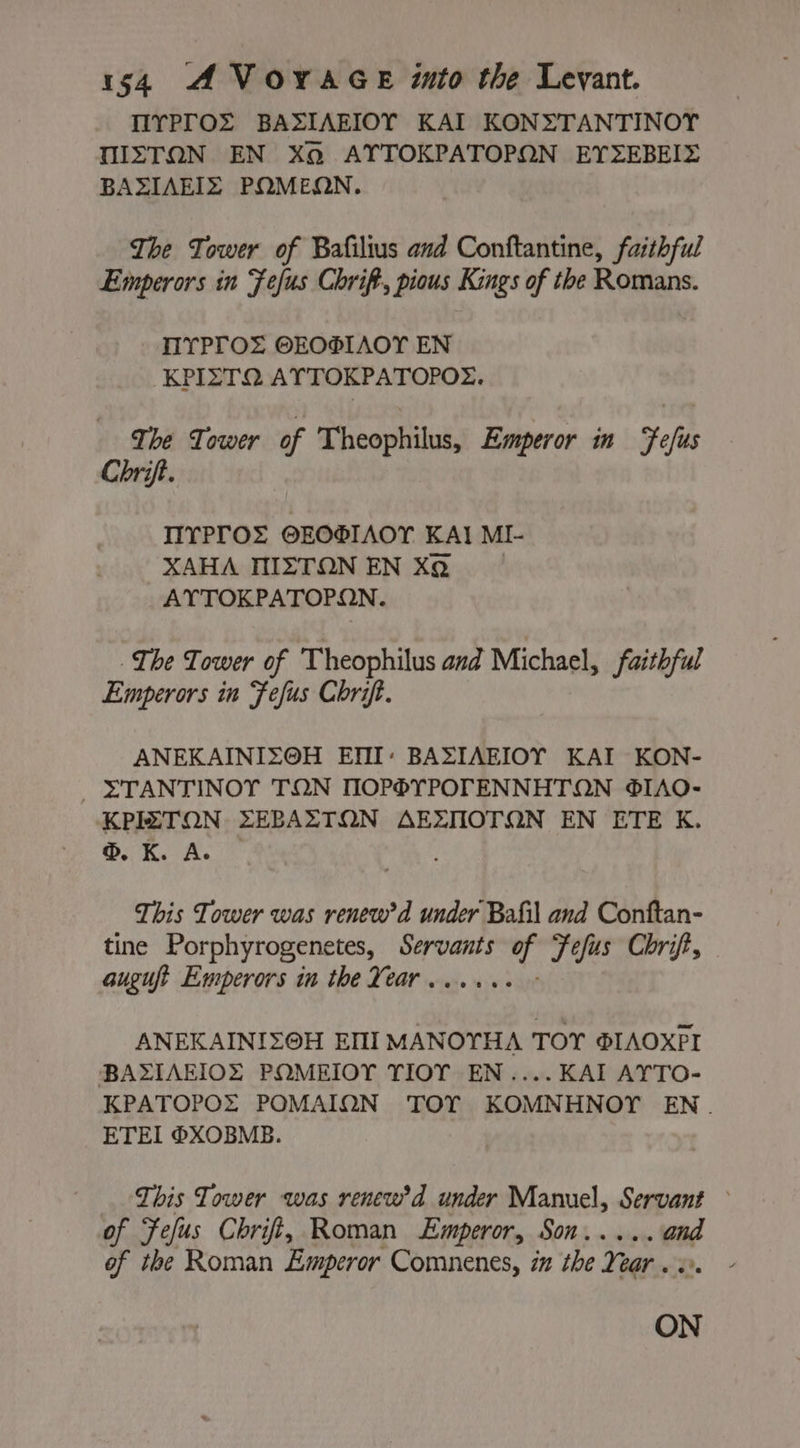 154 A VOYAGE into the Levant.
ΠΥΡΓΟΣ ΒΑΣΙΛΕΙΟΥ ΚΑΙ ΚΟΝΣΤΑΝΤΙΝΟΥ
ΠΙΣΤΩΝ ΕΝ ΧΩ ΑΥΤΟΚΡΑΤΟΡΩΝ ΕΥΣΕΒΕΙΣ
ΒΑΣΙΛΕΙΣ ΡΩΜΕΩΝ.
The Tower of Baſilius and Conſtantine, faithful
Emperors in Jeſus Chriſt, pious Kings of the Romans.
ΠΥΡΓΟΣ ΘΕΟΦΙΛΟΥ ΕΝ
ΚΡΙΣΤΩ ΑΥΤΟΚΡΑΤΟΡΟΣ.
The Tower of Theophilus, Emperor in Jeſus
Chriſt.
ΠΥΡΓΟΣ ΘΕΟΦΙΛΟΥ ΚΑΙ ΜΙ-
ΧΑΗΛ ΠΙΣΤΩΝ ΕΝ ΧΩ
ΑΥΤΟΚΡΑΤΟΡΩΝ.
The Tower of Theophilus and Michael, faithful
Emperors in Jeſus Chriſt.
ΑΝΕΚΑΙΝΙΣΘΗ ΕΠΙ· ΒΑΣΙΛΕΙΟΥ ΚΑΙ ΚΟΝ-
ΣΤΑΝΤΙΝΟΥ ΤΩΝ ΠΟΡΦΥΡΟΓΕΝΝΗΤΩΝ ΦΙΛΟ-
ΚΡΙΣΤΩΝ ΣΕΒΑΣΤΩΝ ΔΕΣΠΟΤΩΝ ΕΝ ΕΤΕ Κ.
Φ. Κ. Α.
This Tower was renew'd under Baſil and Conſtan-
tine Porphyrogenetes, Servants of Jeſus Chriſt,
auguſt Emperors in the Year ......
ΑΝΕΚΑΙΝΙΣΘΗ ΕΠΙ ΜΑΝΟΥΗΛ ΤΟΥ ΦΙΛΟΧΡΙ
ΒΑΣΙΛΕΙΟΣ ΡΩΜΕΙΟΥ ΥΙΟΥ ΕΝ .... ΚΑΙ ΑΥΤΟ-
ΚΡΑΤΟΡΟΣ ΡΟΜΑΙΩΝ ΤΟΥ ΚΟΜΝΗΝΟΥ ΕΝ.
ΕΤΕΙ ΦΧΟΒΜΒ.
This Tower was renew'd under Manuel, Servant
of Jeſus Chriſt, Roman Emperor, Son...... and
of the Roman Emperor Comnenes, in the Year ...
ON